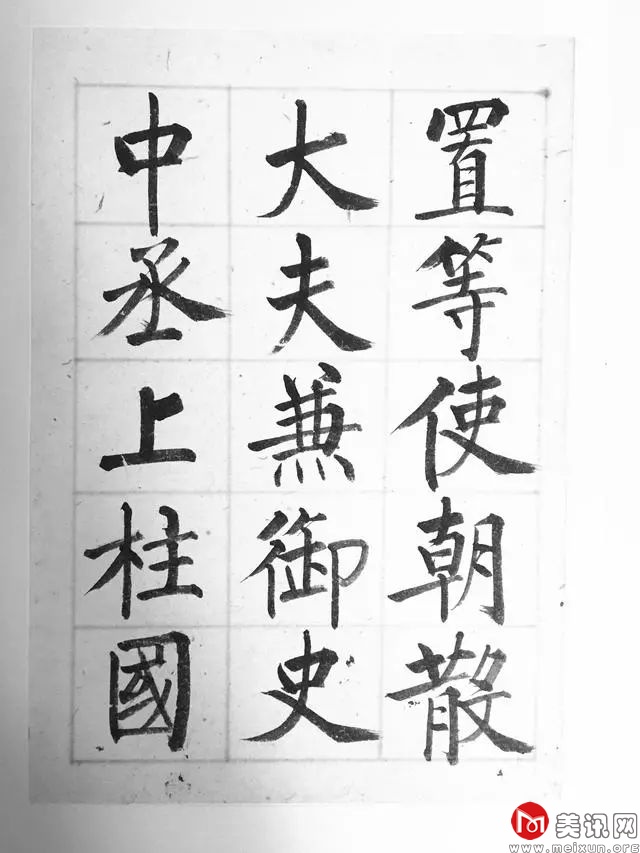 置等使朝散
大夫兼御史
中丞上柱國
美讯网
www.meixun.org